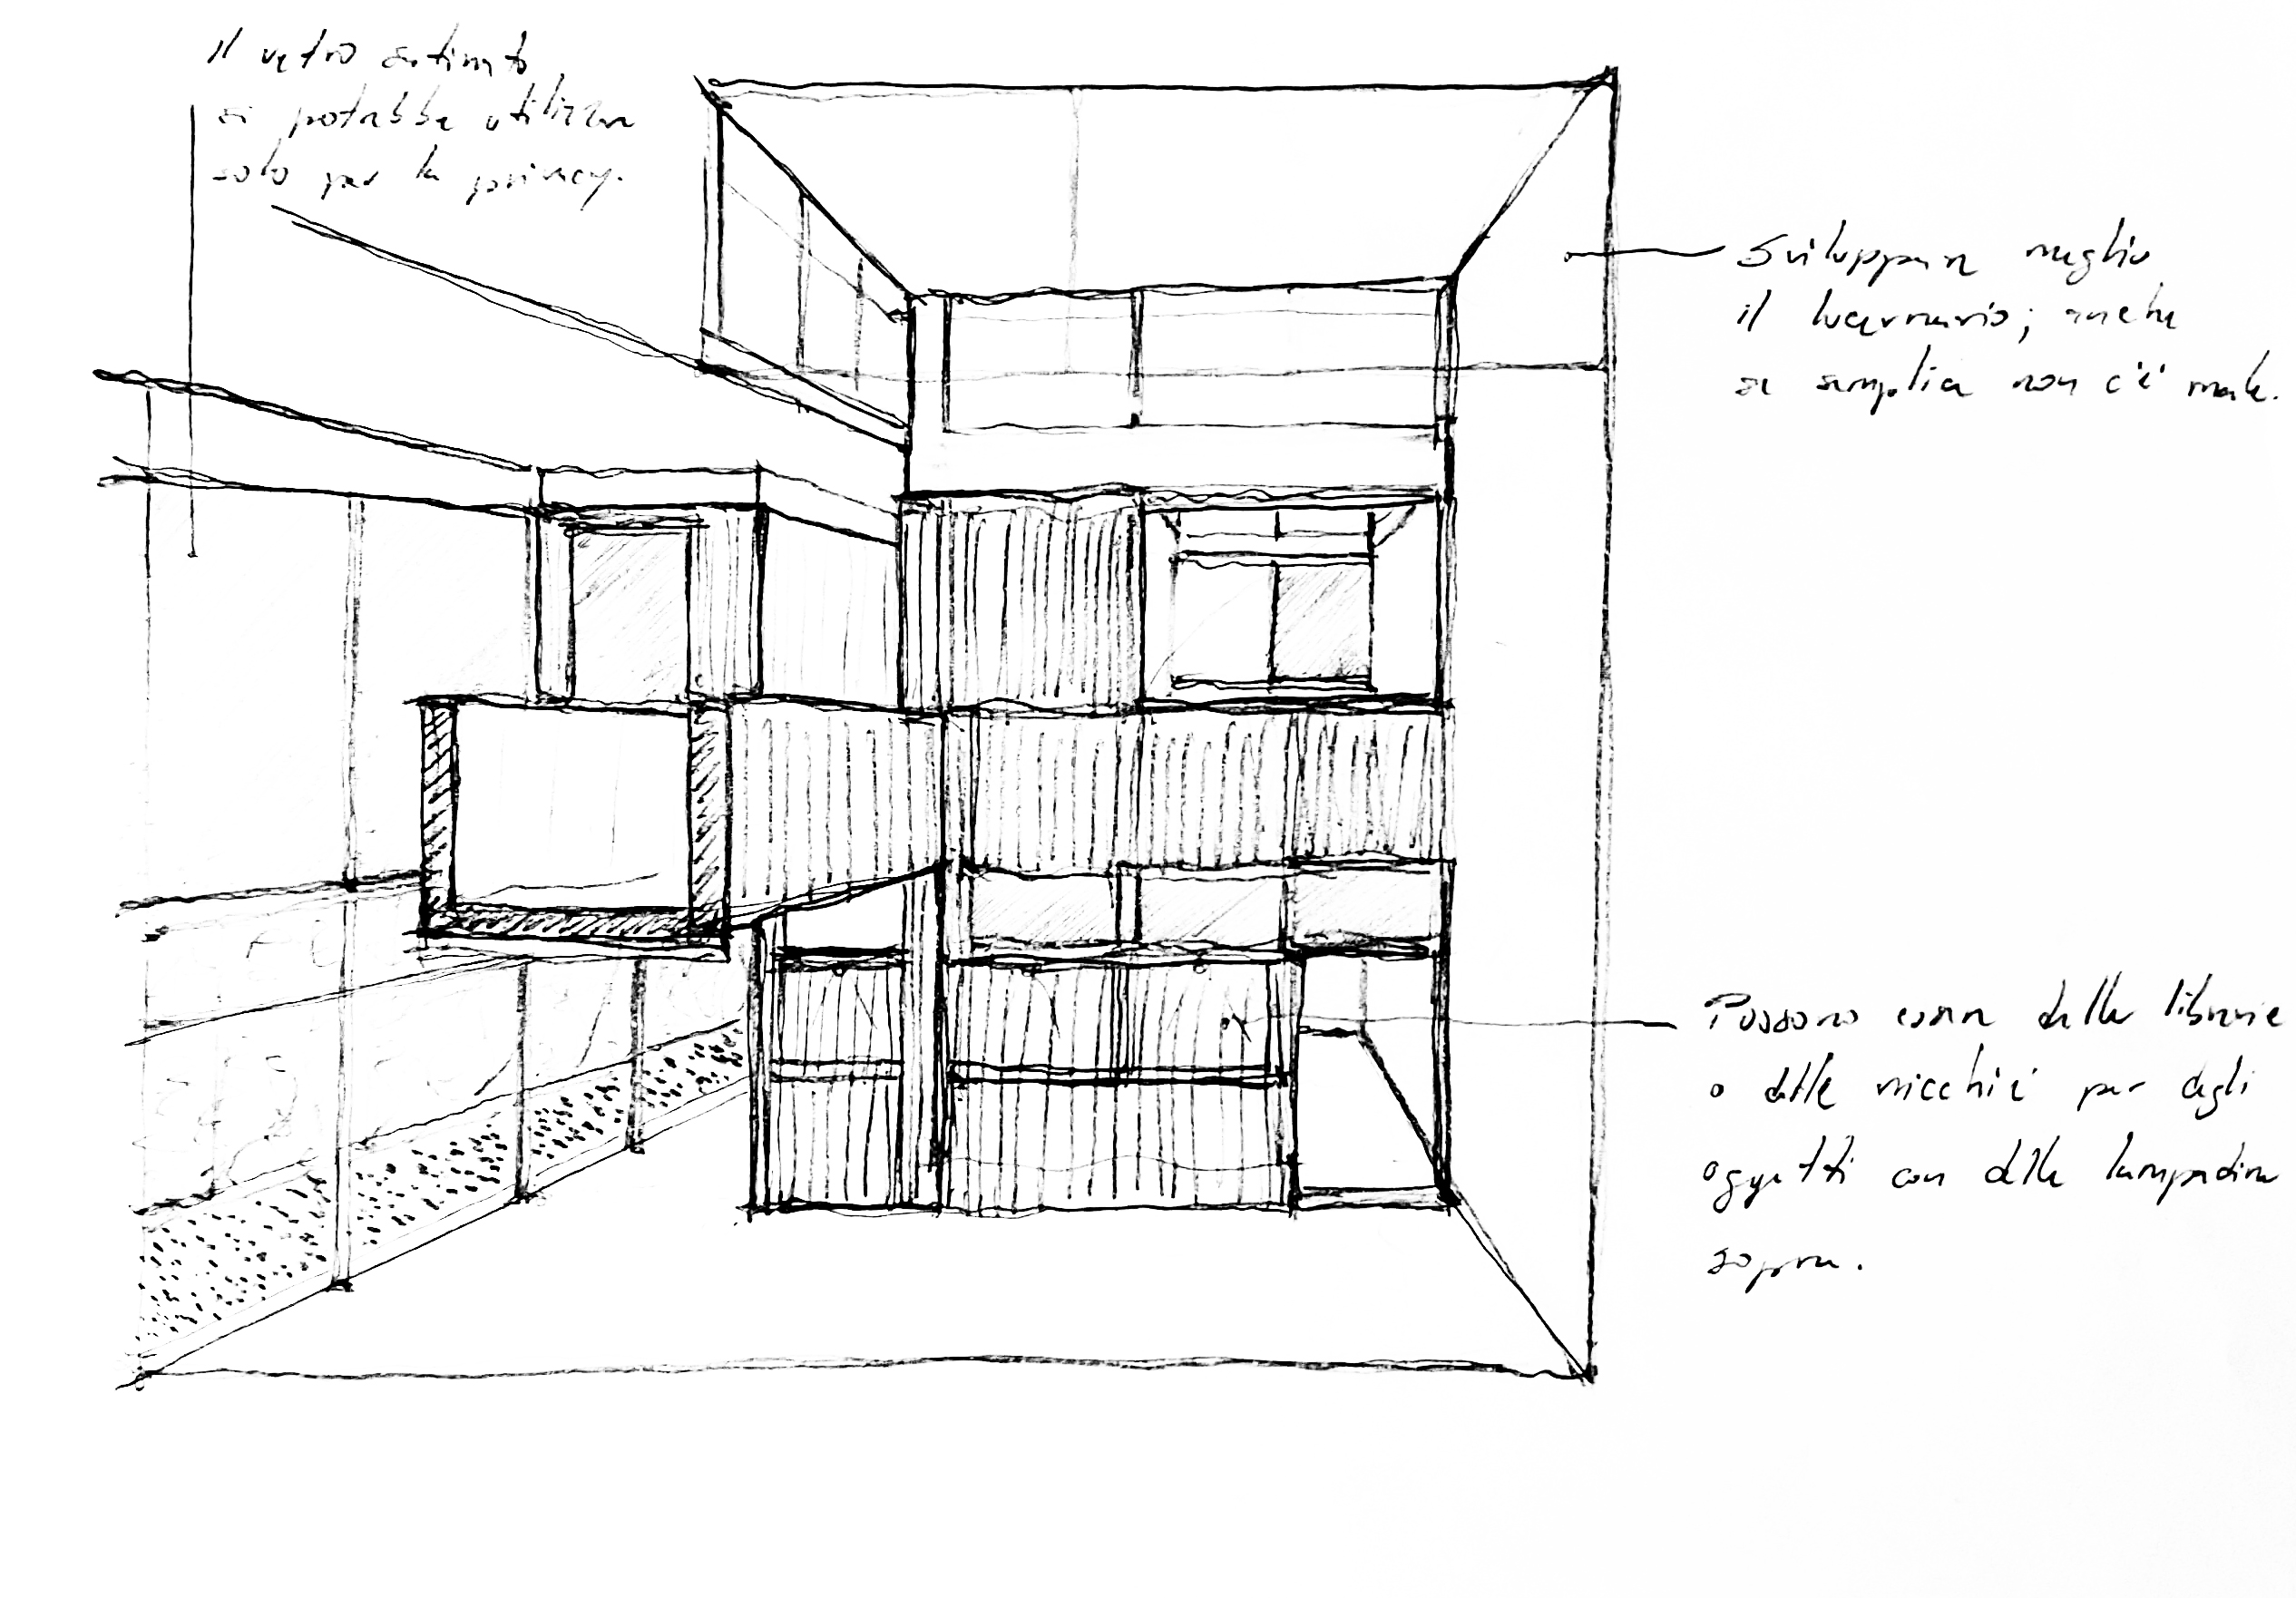 Il vetro satinato
si potrebbe utilizzare
solo per la privacy.
Sviluppare meglio
il lucernario; anche
se semplice non c'è male.
Possono essere delle librerie
o delle nicchie per degli
oggetti con delle lampadine
sopra.